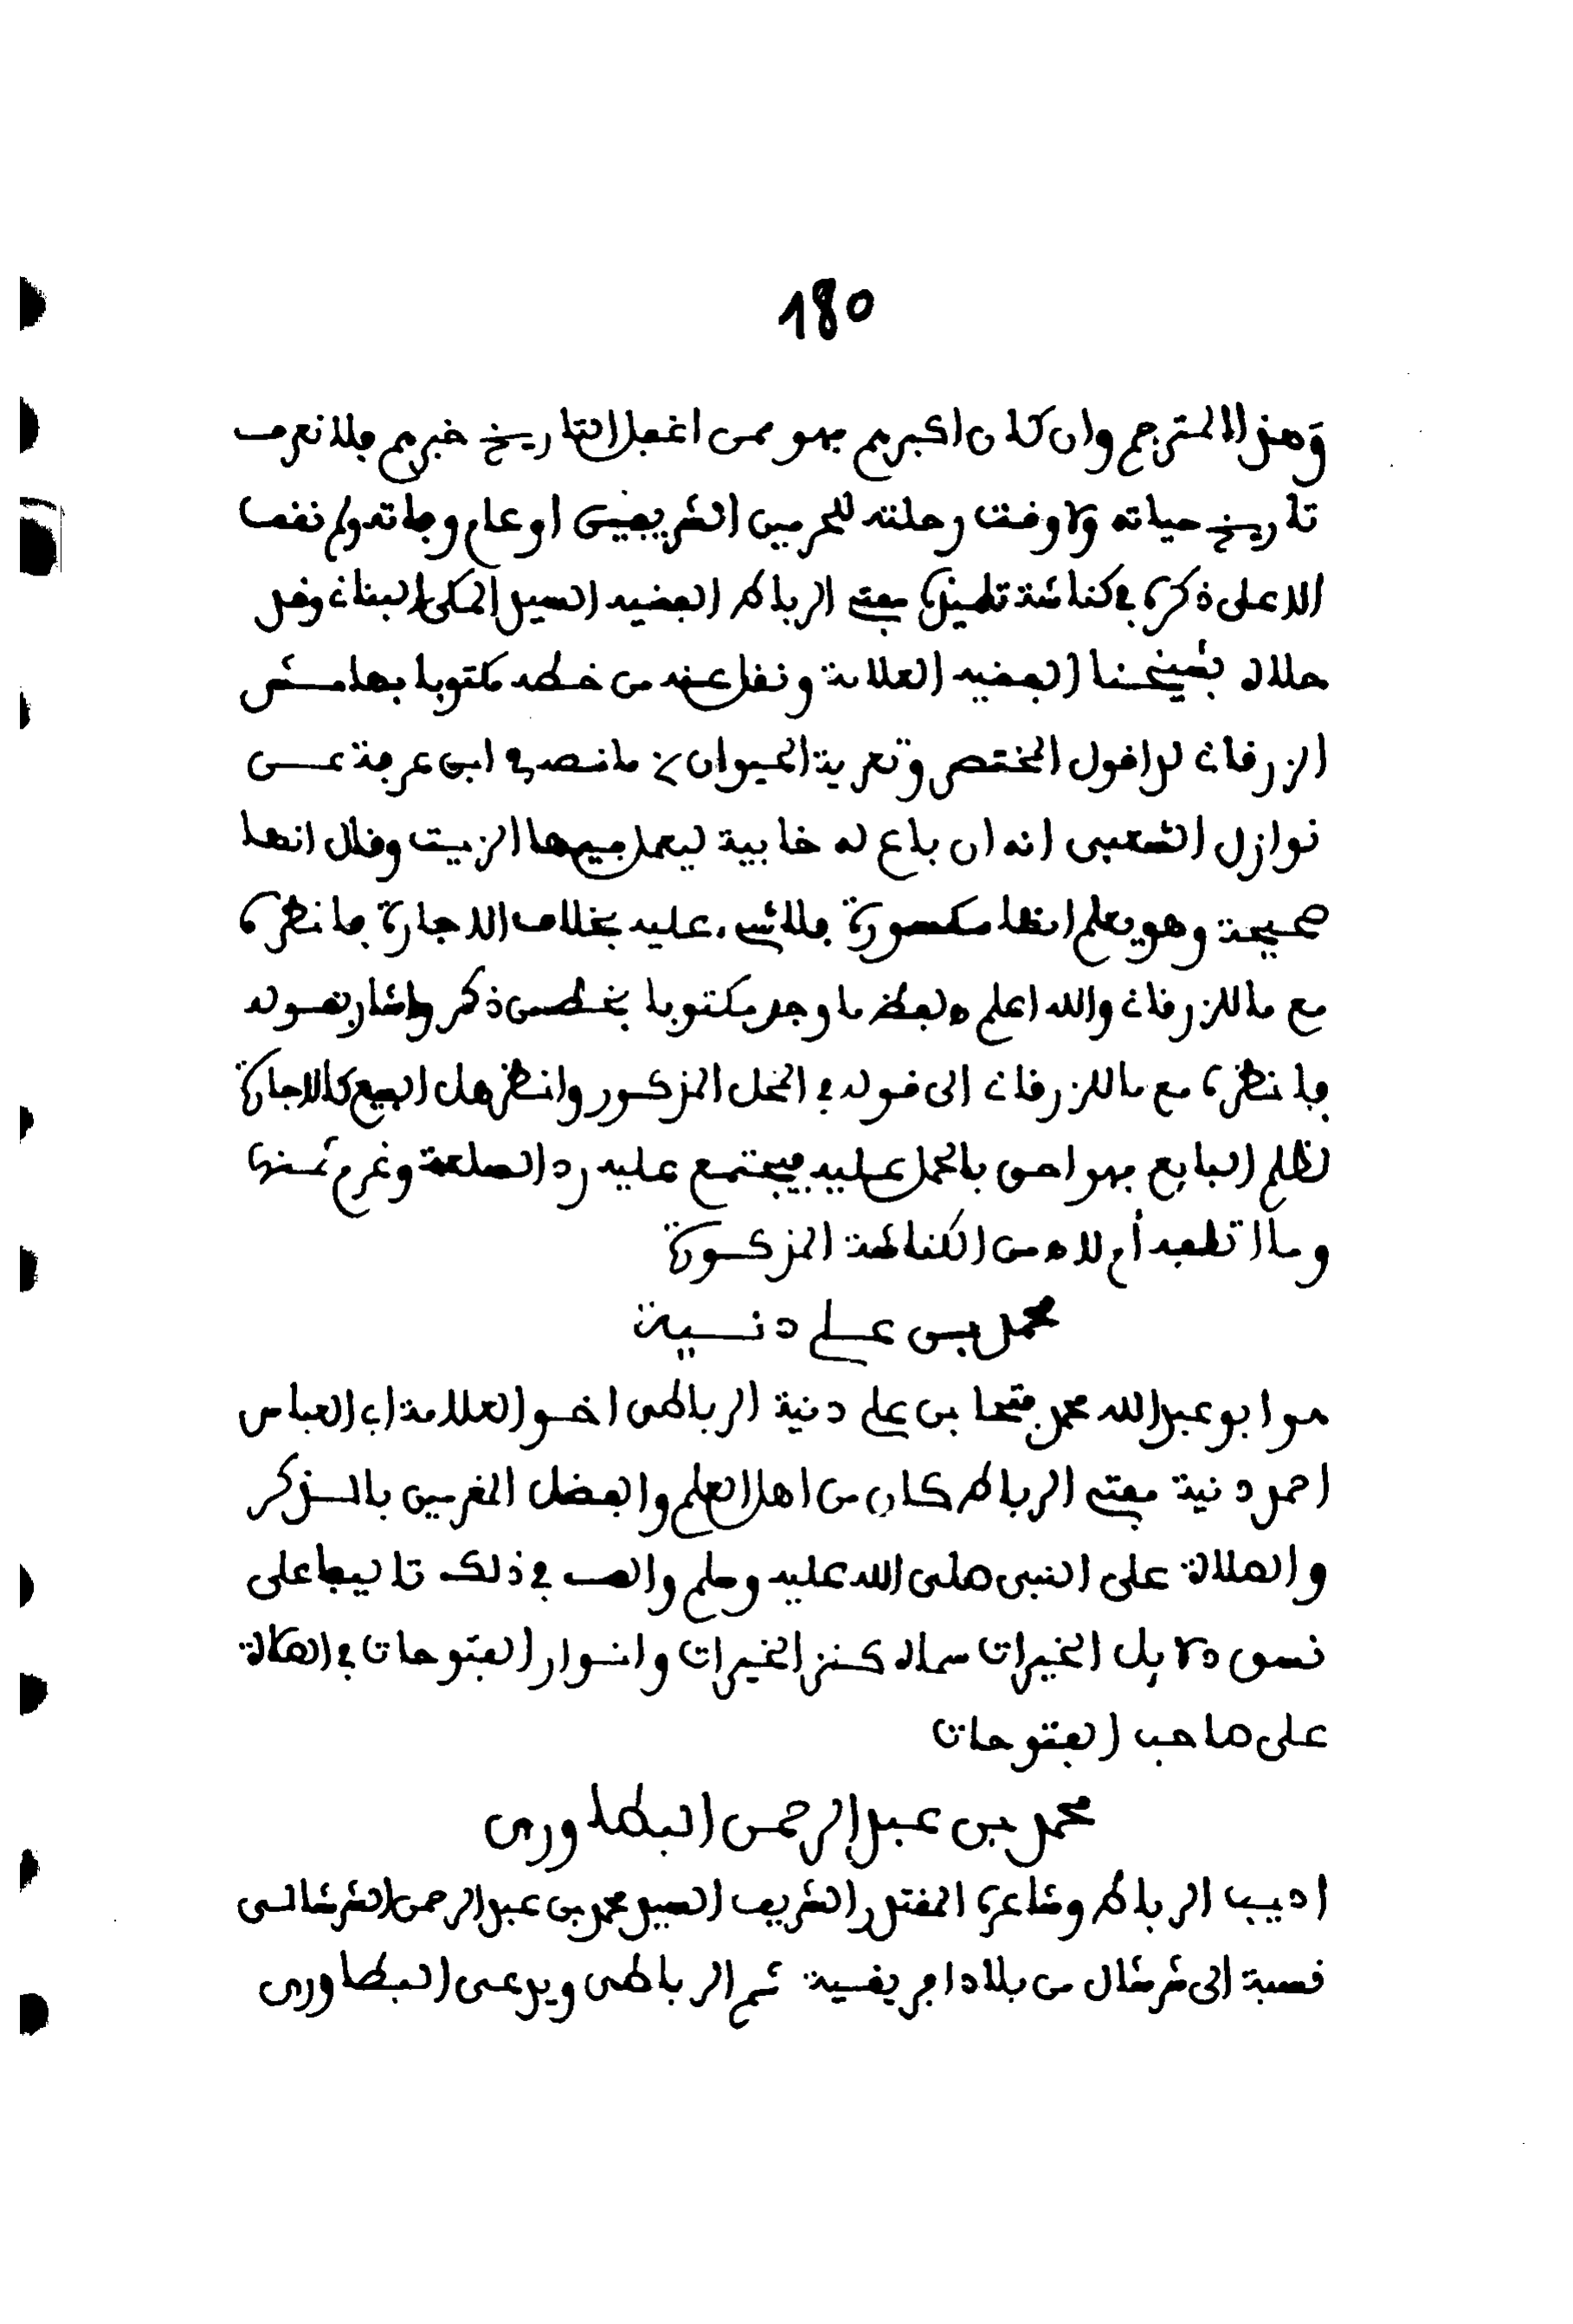 180
وهذا المترجم وان كان اكبرهم فهو ممن اغفل التاريخ خبرهم فلا نعرف
تاريخ حياته ولا وقت رحلته للحرمين الشريفين او عام وفاته ولم نقف
الا على ذكره في كناشة تلميذه مفتي الرباط الفقيه السيد المكي البناني وقد
حلاه بشيخنا الفقيه العلامة ونقل عنه من خطه مكتوبا بهامش
الزرقاني لدا قول المختصر وتعرية الحيوان ما نصه في ابن عرفة عن
نوازل الشعبي انه ان باع له خابية ليعمل فيها الزيت وقال انها
صحيحة وهو يعلم انها مكسورة فلا شيء عليه بخلاف الاجارة فانظره
مع ما للزرقاني والله اعلم ه لفظ ما وجد مكتوبا بخط من ذكر واشار بقوله
فانظره مع ما للزرقاني الى قوله في المحل المذكور وانظر هل البيع كالاجارة
لظلم البايع فهو احق بالحمل عليه فيجتمع عليه رد السلعة وغرم ثمنها
وما اتلفه أم لا ه من الكناشة المذكورة
محمد بن علي دنية
هو ابو عبد الله محمد فتحا بن علي دنية الرباطي اخو العلامة ابي العباس
احمد دنية مفتي الرباط كان من اهل العلم والفضل المغرمين بالذكر
والصلاة على النبي صلى الله عليه وسلم والف في ذلك تاليفا على
نسق دلايل الخيرات سماه كنز الخيرات وانوار الفتوحات في الصلاة
على صاحب الفتوحات
محمد بن عبد الرحمن البطاوري
اديب الرباط وشاعره المفتدر الشريف السيد محمد بن عبد الرحمن الشرشالي
نسبة الى شرشال من بلاد افريقية ثم الرباطي ويدعى البطاوري